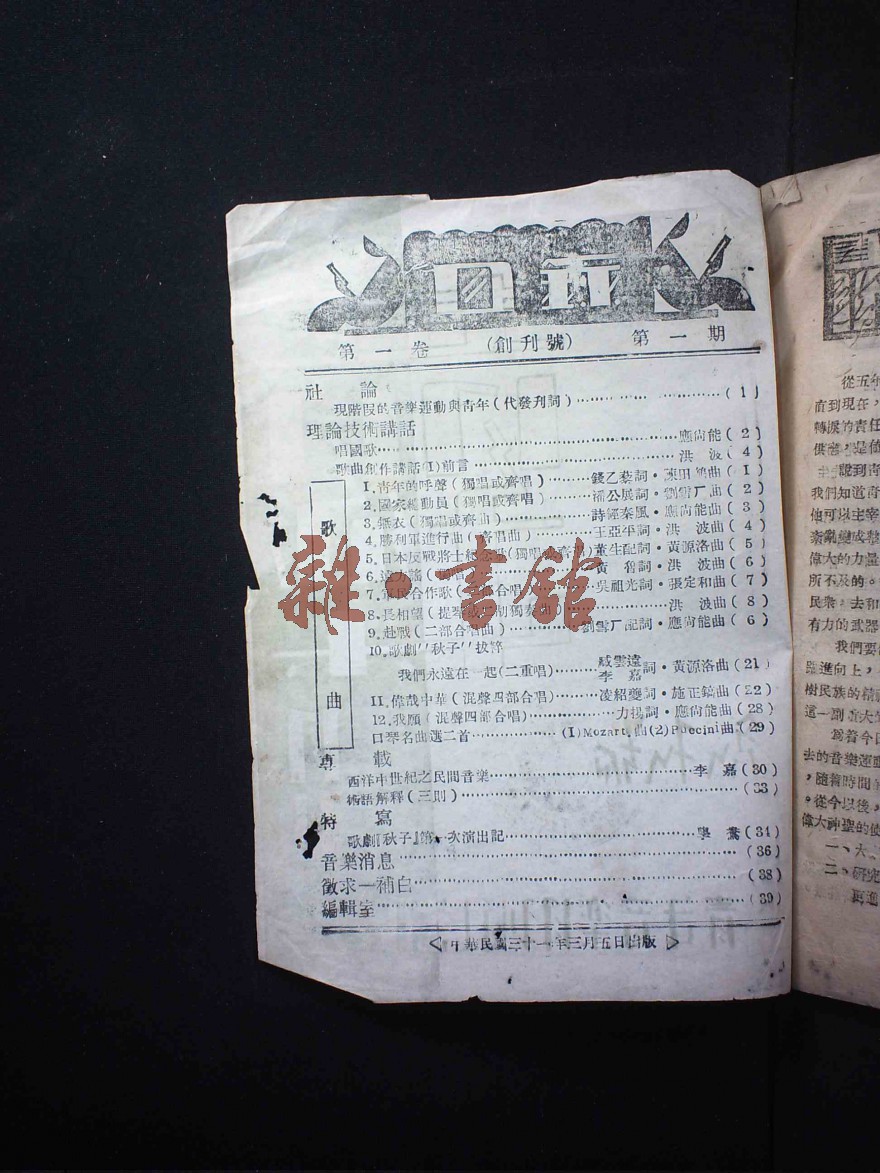 目 錄
第一卷 (創刊號) 第一期
社論
現階段的音樂運動與青年(代發刊詞)……(1)
理論技術講話
唱國歌……應尚能(2)
歌曲創作講話(I)前言……洪波(4)
歌曲
1.青年的呼聲(獨唱或齊唱)……錢乙藜詞·陳田鶴曲(1)
2.國家總動員(獨唱或齊唱)……潘公展詞·劉雪厂曲(2)
3.無衣(獨唱或齊曲)……詩經秦風·應尚能曲(3)
4.勝利軍進行曲(齊唱曲)……王亞平詞·洪波曲(4)
5.日本反戰將士紀念歌(獨唱或齊唱)董生配詞·黃源洛曲(5)
6. 詞·洪波曲(6)
7.軍民合作歌(二部合唱)……吳祖光詞·張定和曲(7)
8.長相望(提琴 獨奏曲)……洪波曲(8)
9.赴戰(二部合唱曲)……劉雪厂配詞·應尚能曲(6)
10.歌劇"秋子"拔萃
我們永遠在一起(二重唱)……臧雲遠 李嘉詞·黃源洛曲(21)
11.偉哉中華(混聲四部合唱)……凌紹夔詞·施正鎬曲(22)
12.我願(混聲四部合唱)……力揚詞·應尚能曲(28)
口琴名曲選二首……(I)Mozart曲(2)Puccini曲(29)
專載
西洋中世紀之民間音樂……李嘉(30)
術語解釋(三則)……(33)
特寫
歌劇『秋子』第一次演出記……(34)
音樂消息……(36)
徵求—補白……(38)
編輯室……(39)
中華民國三十一年三月五日出版
雜·書館
從五年
直到現在,
轉捩的責任
供獻,是值
說到青
我們知道青
他可以主宰
紊亂變成整
偉大的力量
所不及的。
民衆,去和
有力的武器
我們要
匯進向上,
樹民族的精神
這一副重大
爲着今日
去的音樂運動
,隨着時間
。從今以後,
偉大神聖的使
一、大
二、研究